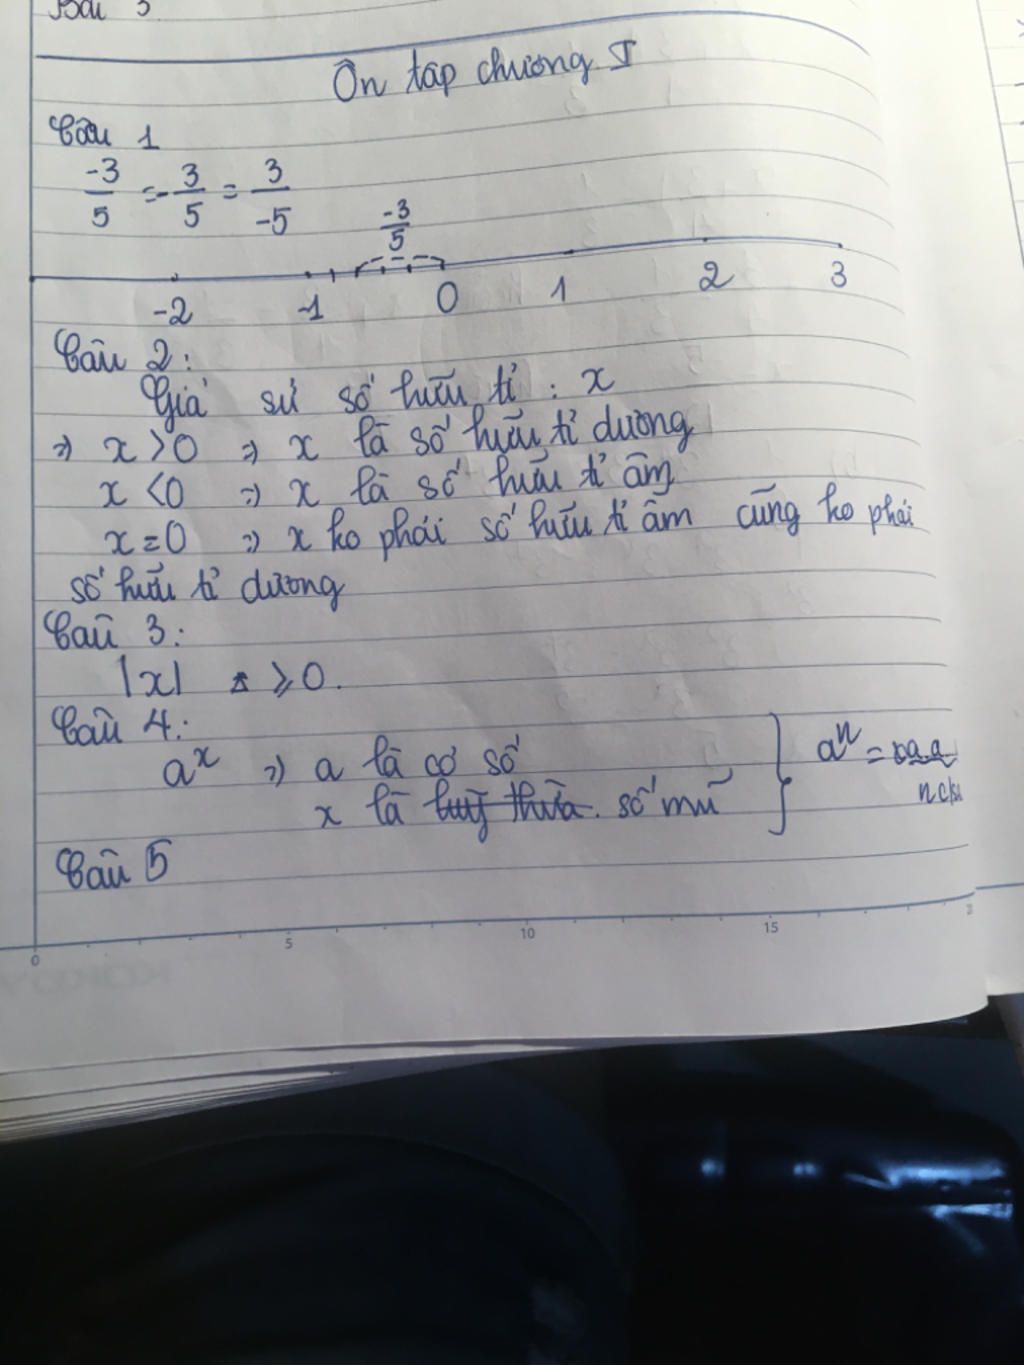 Bài 3
Ôn tâp chương I
Câu 1
-3/5 = -3/5 = 3/-5
-3/5
-2 -1 0 1 2 3
Câu 2:
Giả sử số hữu tỉ : x
=> x > 0 => x là số hữu tỉ dương
x < 0 => x là số hữu tỉ âm
x = 0 => x ko phải số hữu tỉ âm cũng ko phải
số hữu tỉ dương
Câu 3:
|x| ≥ 0.
Câu 4:
a^x => a là cơ số
x là luỹ thừa. số mũ
} a^n = a.a
Câu 5
0 5 10 15